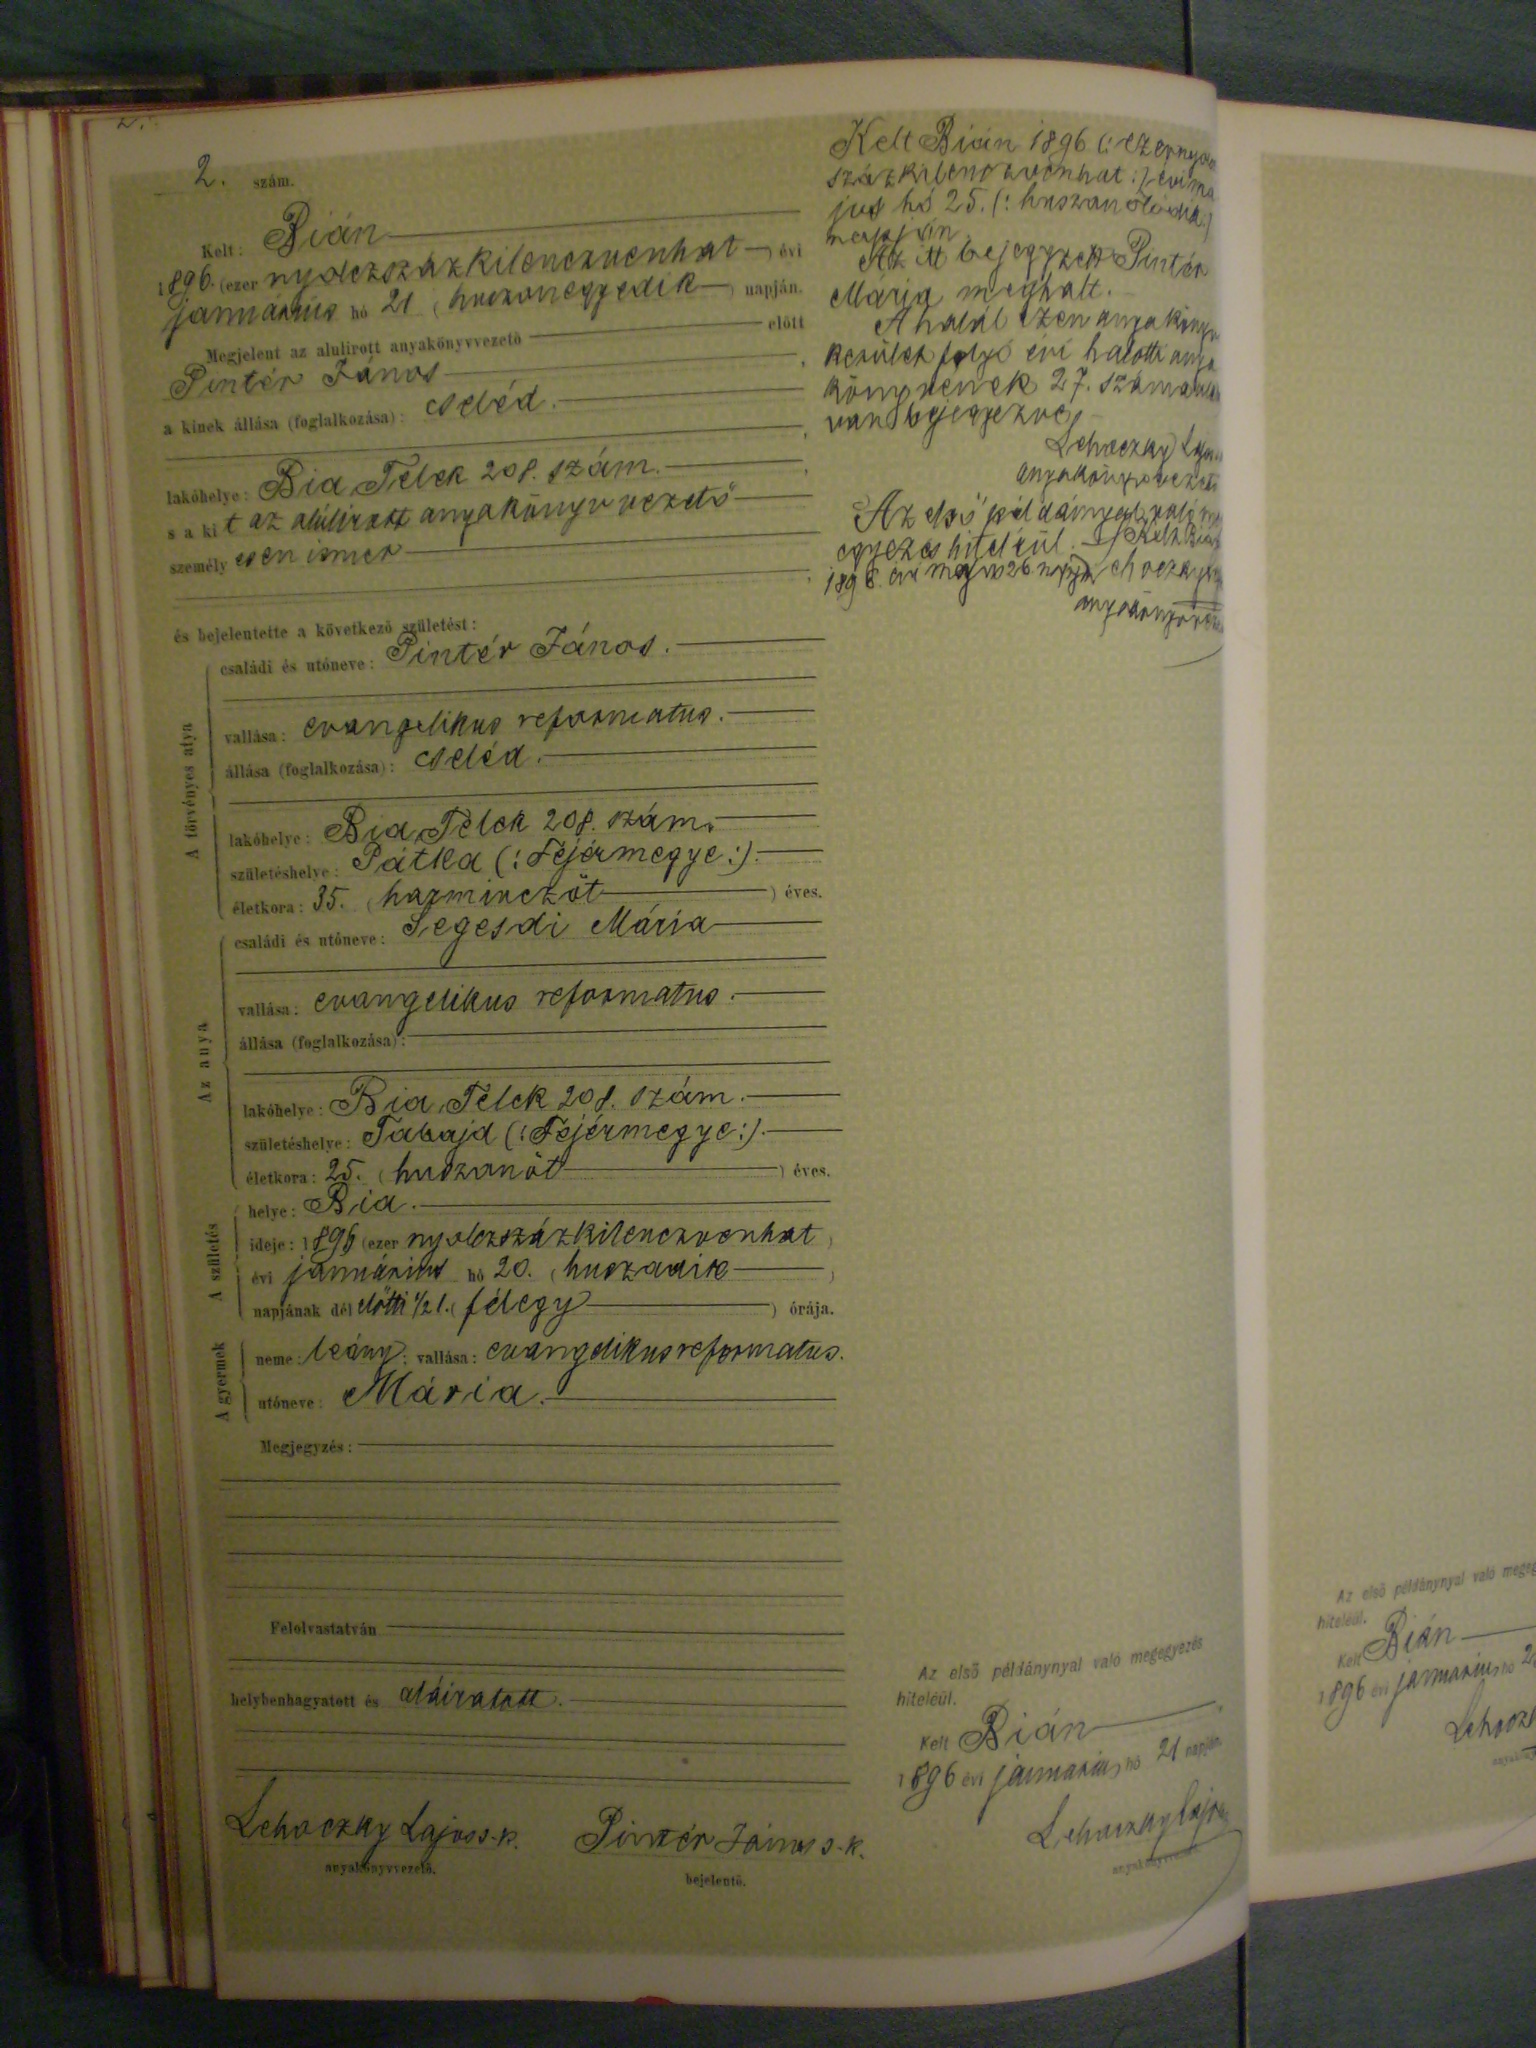 2. szám.
Kelt: Bián
1896. (ezer nyolczszázkilenczvenhat) évi
januárius hó 21 (huszonegyedik) napján.
Megjelent az alulirott anyakönyvvezető előtt
Pintér János
a kinek állása (foglalkozása): cseléd.
lakóhelye: Bia Telek 208. szám.
s a kit az alulirott anyakönyvvezető
személyesen ismer
és bejelentette a következő születést:
A törvényes atya
családi és utóneve: Pintér János.
vallása: evangelikus reformatus.
állása (foglalkozása): cseléd.
lakóhelye: Bia Telek 208. szám.
születéshelye: Pátka (: Fejérmegye :).
életkora: 35. (harminczöt) éves.
Az anya
családi és utóneve: Segesdi Mária
vallása: evangelikus reformatus.
állása (foglalkozása):
lakóhelye: Bia Telek 208. szám.
születéshelye: Tabajd (: Fejérmegye :).
életkora: 25. (huszonöt) éves.
A születés
helye: Bia.
ideje: 1896 (ezer nyolczszázkilenczvenhat)
évi januárius hó 20. (huszadik)
napjának dél előtti 1/2 1. (félegy) órája.
A gyermek
neme: leány; vallása: evangelikus reformatus.
utóneve: Mária.
Megjegyzés:
Felolvastatván
helybenhagyatott és aláiratott.
Lehoczky Lajos s. k. Pintér János s. k.
anyakönyvvezető. bejelentő.
Kelt Bián 1896 (: ezernyolcz
százkilenczvenhat :) évi má
jus hó 25. (: huszonötödik :)
napján.
Az itt bejegyzett Pintér
Mária meghalt.
A halál ezen anyakönyvi
kerület folyó évi halotti anya
könyvének 27. száma alatt
van bejegyezve.
Lehoczky Lajos
anyakönyvvezető
Az első példánynyal való
egyezés hiteléül. Kelt Bián
1896 évi május 26 napján Lehoczky
anyakönyvvezető
Az első példánynyal való megegyezés
hiteléül.
Kelt Bián
1896 évi januárius hó 21 napján.
Lehoczky Lajos
anyakönyvvezető.
Az első példánynyal való
hiteléül.
Kelt Bián
1896 évi januárius hó